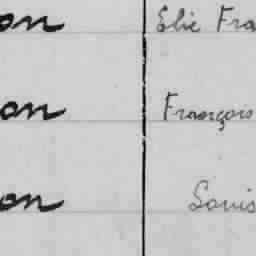 on Elie Fra
on François
on Louis